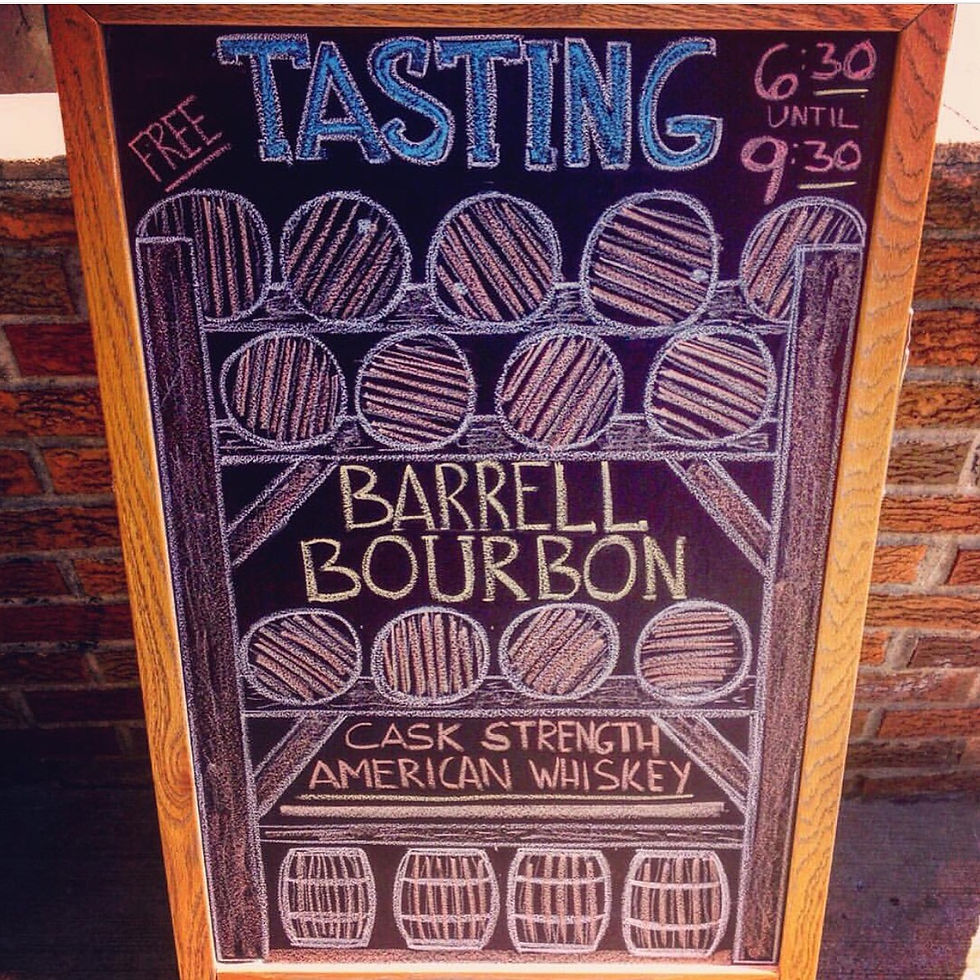 FREE
TASTING
6:30
UNTIL
9:30
BARRELL
BOURBON
CASK STRENGTH
AMERICAN WHISKEY